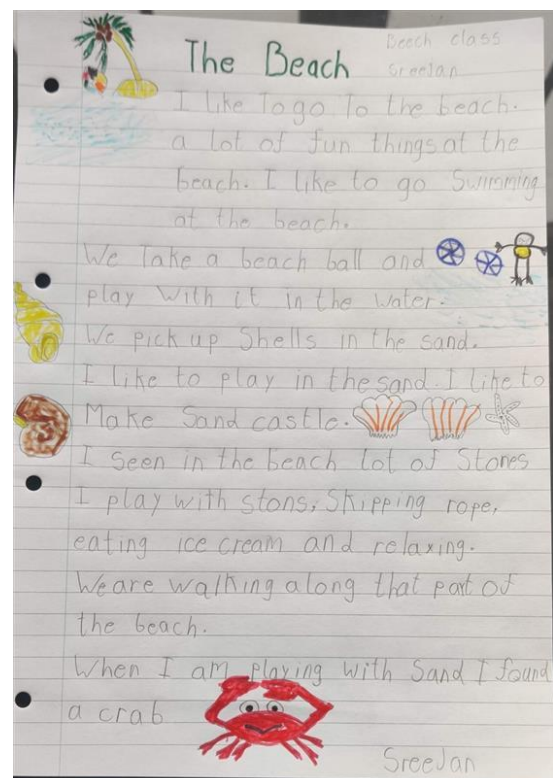 Beech class
The Beach
SreeJan
I like To go To the beach.
a lot of fun things at the
beach. I like to go Swimming
at the beach.
We Take a beach ball and
play With it in the Water.
We pick up Shells in the sand.
I like to play in the sand. I like to
Make Sand castle.
I Seen in the beach lot of Stones
I play with stons, Skipping rope,
eating ice cream and relaxing.
We are walking along that part of
the beach.
When I am playing with Sand I found
a crab
SreeJan